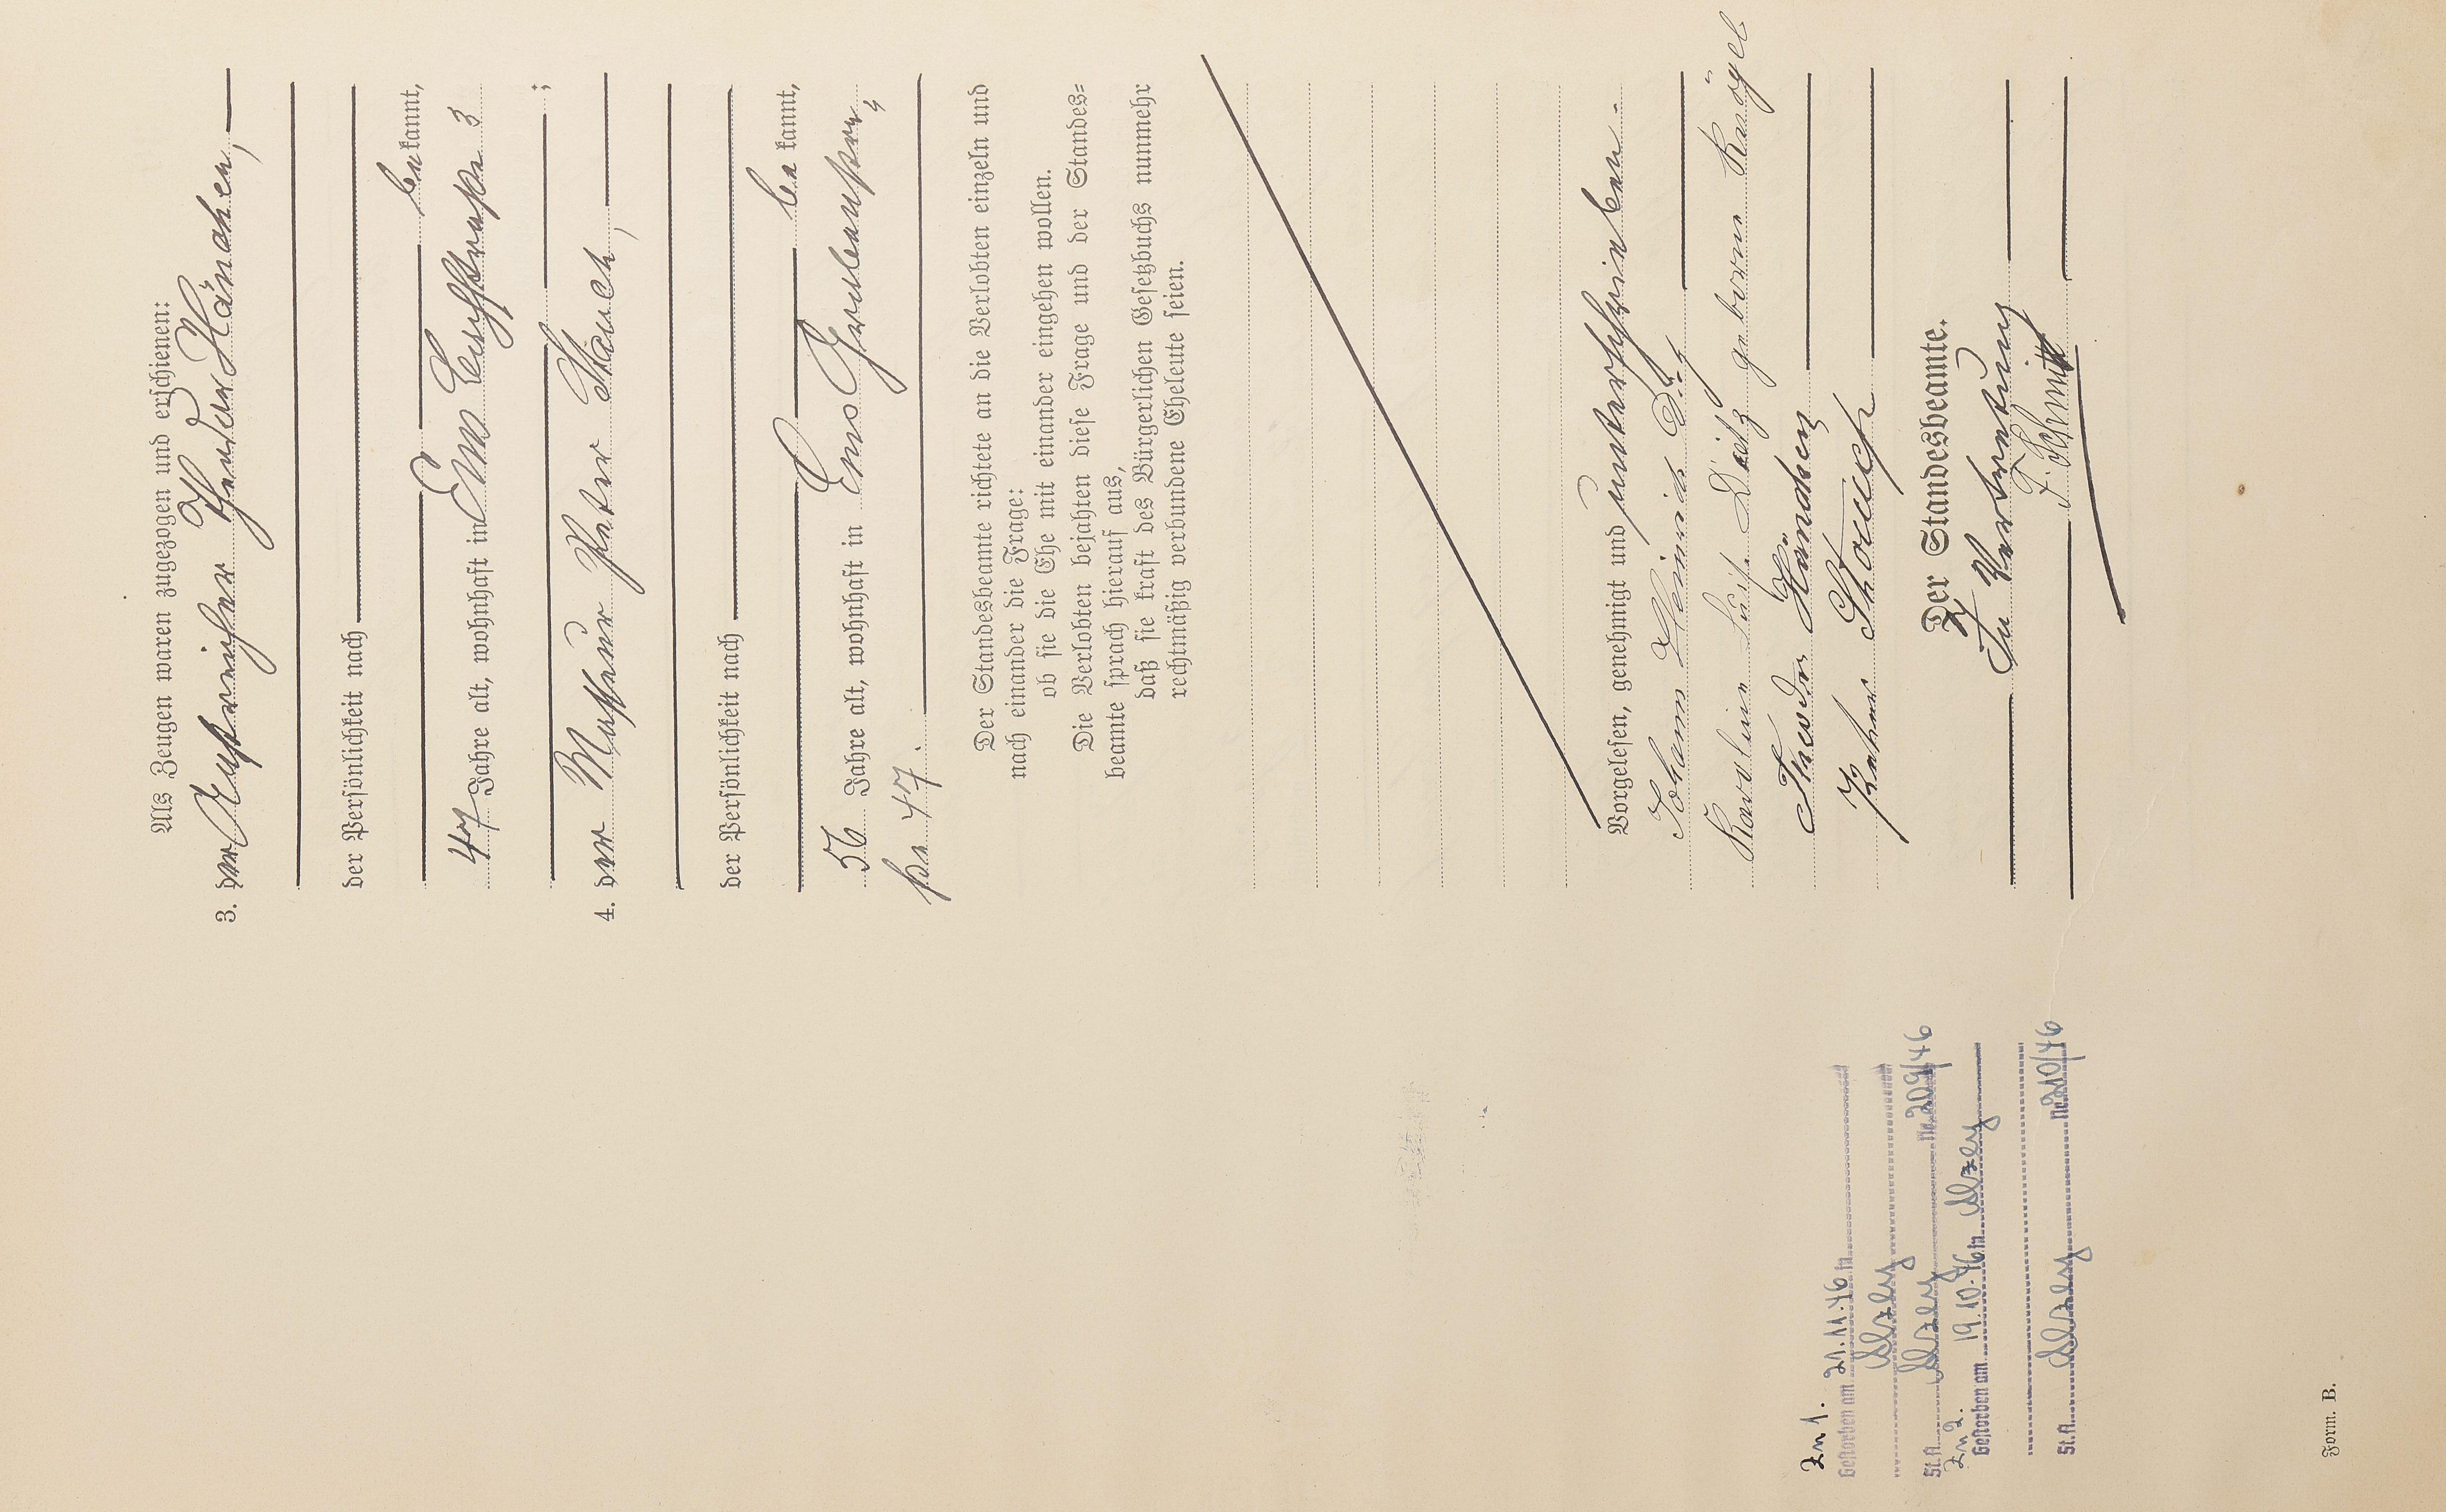 Als Zeugen waren zugezogen und erschienen:
3. der Theodor Hänchen,
der Persönlichkeit nach
bekannt,
47 Jahre alt, wohnhaft in Ems
3
;
4. der Peter Stauch,
der Persönlichkeit nach
bekannt,
56 Jahre alt, wohnhaft in Ems Grabenstra-
ße 47.
Der Standesbeamte richtete an die Verlobten einzeln und
nach einander die Frage:
ob sie die Ehe mit einander eingehen wollen.
Die Verlobten bejahten diese Frage und der Standes=
beamte sprach hierauf aus,
daß sie kraft des Bürgerlichen Gesetzbuchs nunmehr
rechtmäßig verbundene Eheleute seien.
Vorgelesen, genehmigt und unterschrieben.
Johann Heinrich
Karoline Luise Dietz geborne Krögel
Theodor Hänchen
Peter Stauch
Der Standesbeamte.
In Vertretung
F. Schmitt
Zu 1.
Gestorben am 21.11.46 in
Alzey
St.A. Alzey Nr. 209/46
Zu 2.
Gestorben am 19.10.46 in Alzey
St.A. Alzey Nr. 210/46
Form. B.